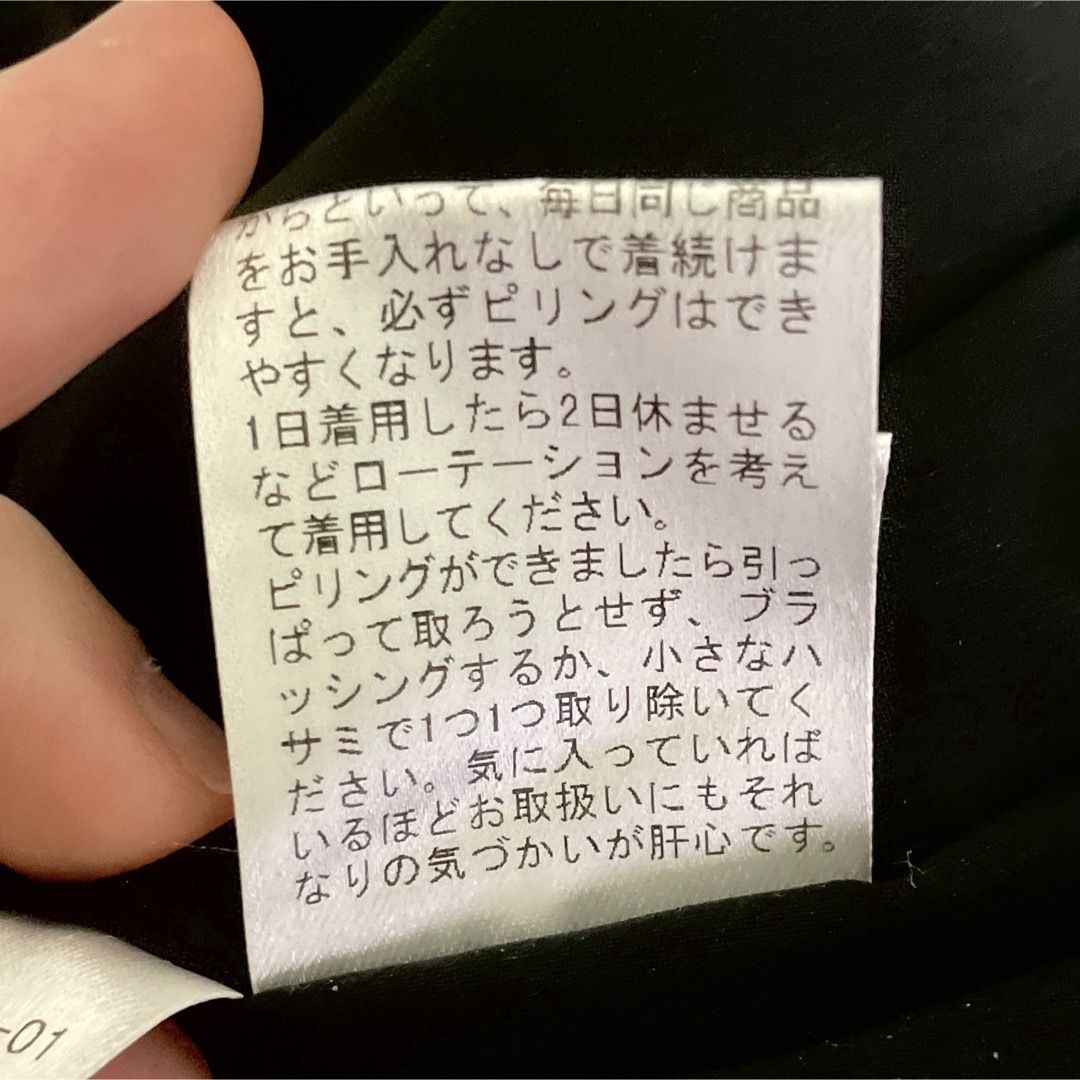 からといって、毎日同じ商品
をお手入れなしで着続けま
すと、必ずピリングはでき
やすくなります。
1日着用したら2日休ませる
などローテーションを考え
て着用してください。
ピリングができましたら引っ
ぱって取ろうとせず、ブラ
ッシングするか、小さなハ
サミで1つ1つ取り除いてく
ださい。気に入っていれば
いるほどお取扱いにもそれ
なりの気づかいが肝心です。
-01